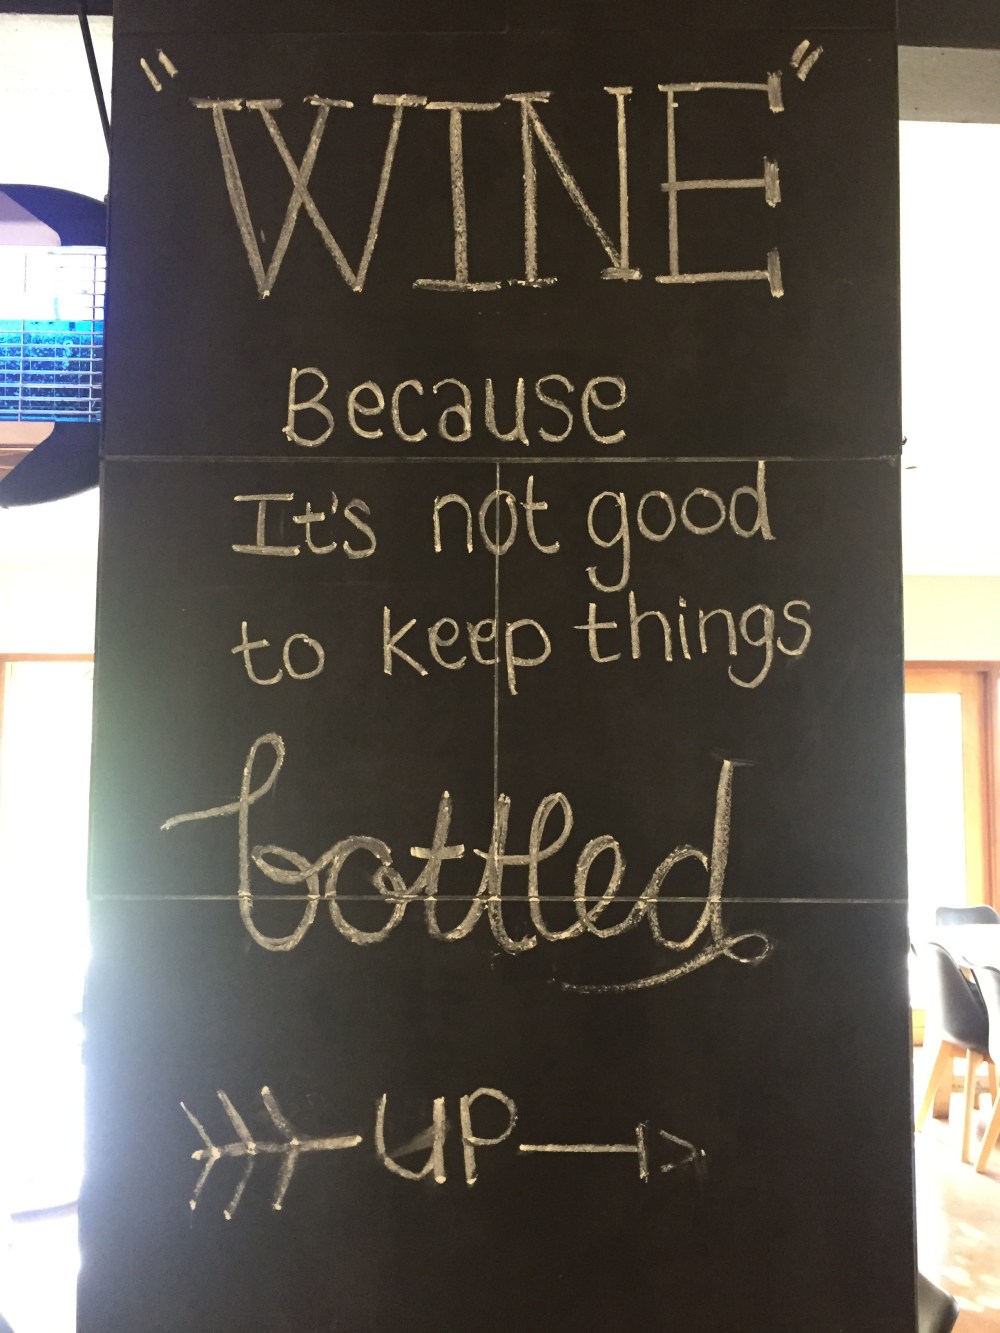 "WINE"
Because
It's not good
to keep things
bottled
UP